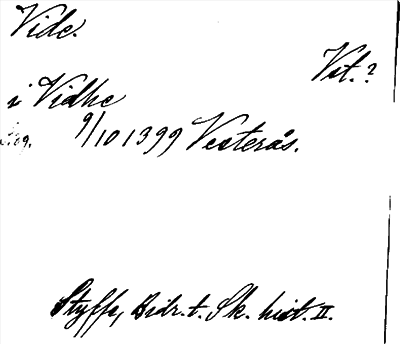 Vide.
Vst.?
i Vidhe
9/10 1399 Vesterås.
Styffe, Bidr. t. Sk. hist. II.